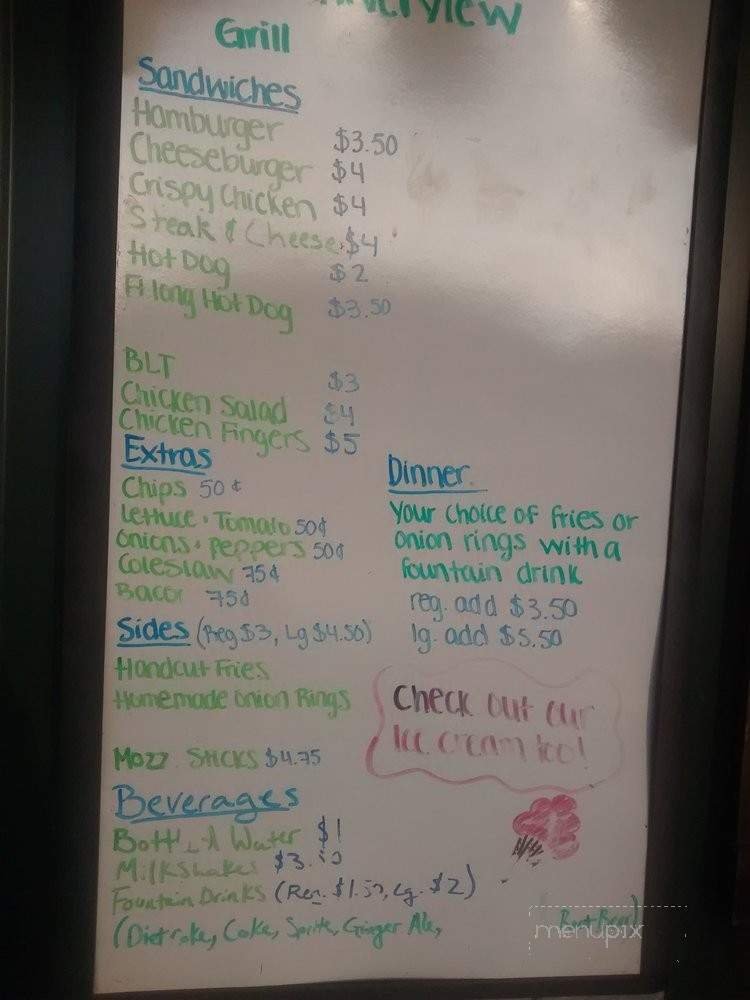 Grill
Sandwiches
Hamburger $3.50
Cheeseburger $4
Crispy Chicken $4
Steak & Cheese $4
Hot Dog $2
Ft long Hot Dog $3.50
BLT $3
Chicken Salad $4
Chicken Fingers $5
Extras
Chips 50¢
Lettuce · Tomato 50¢
Onions · peppers 50¢
Coleslaw 75¢
Bacon 75¢
Dinner
Your choice of fries or
onion rings with a
fountain drink
reg. add $3.50
lg. add $5.50
Sides (Reg $3, Lg $4.50)
Handcut Fries
Homemade Onion Rings
Mozz Sticks $4.75
Check out our
Ice cream too!
Beverages
Bottled Water $1
Milkshakes
Fountain Drinks (Reg. $1.50, Lg. $2)
(Diet Coke, Coke, Sprite, Ginger Ale, Root Beer)
menupix